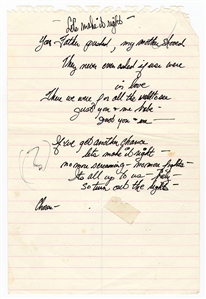 - Lets make it right -
You - Father pushed, my mother shoved
They never even asked if we were
in love
Then we were for all the
Just you & me babe -
Just you & me -
(2)
If've got another chance
lets make it right -
no more screaming - no more fights -
Its all up to us -
So turn out the lights -
Chorus -